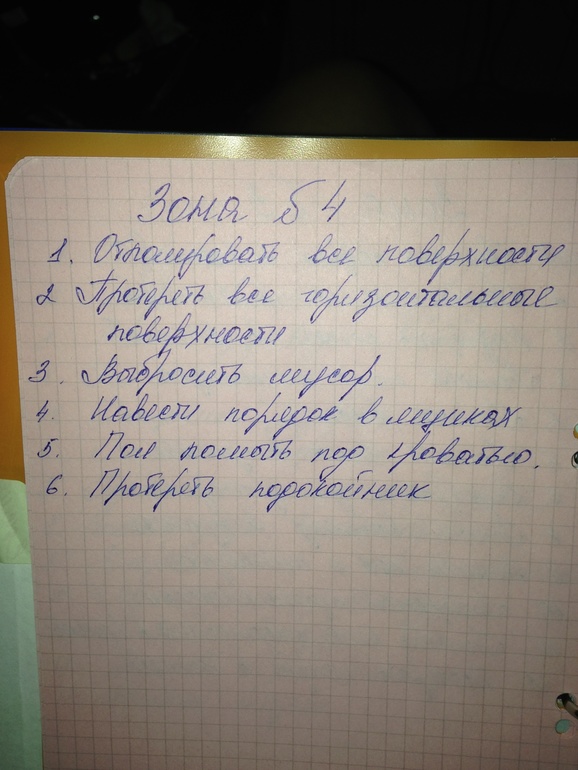 Зона б 4
1. Отполировать все поверхности
2 Протереть все горизонтальные
поверхности
3. Выбросить мусор.
4. Навести порядок в ящиках
5. Пол помыть под кроватью.
6. Протереть подокойник